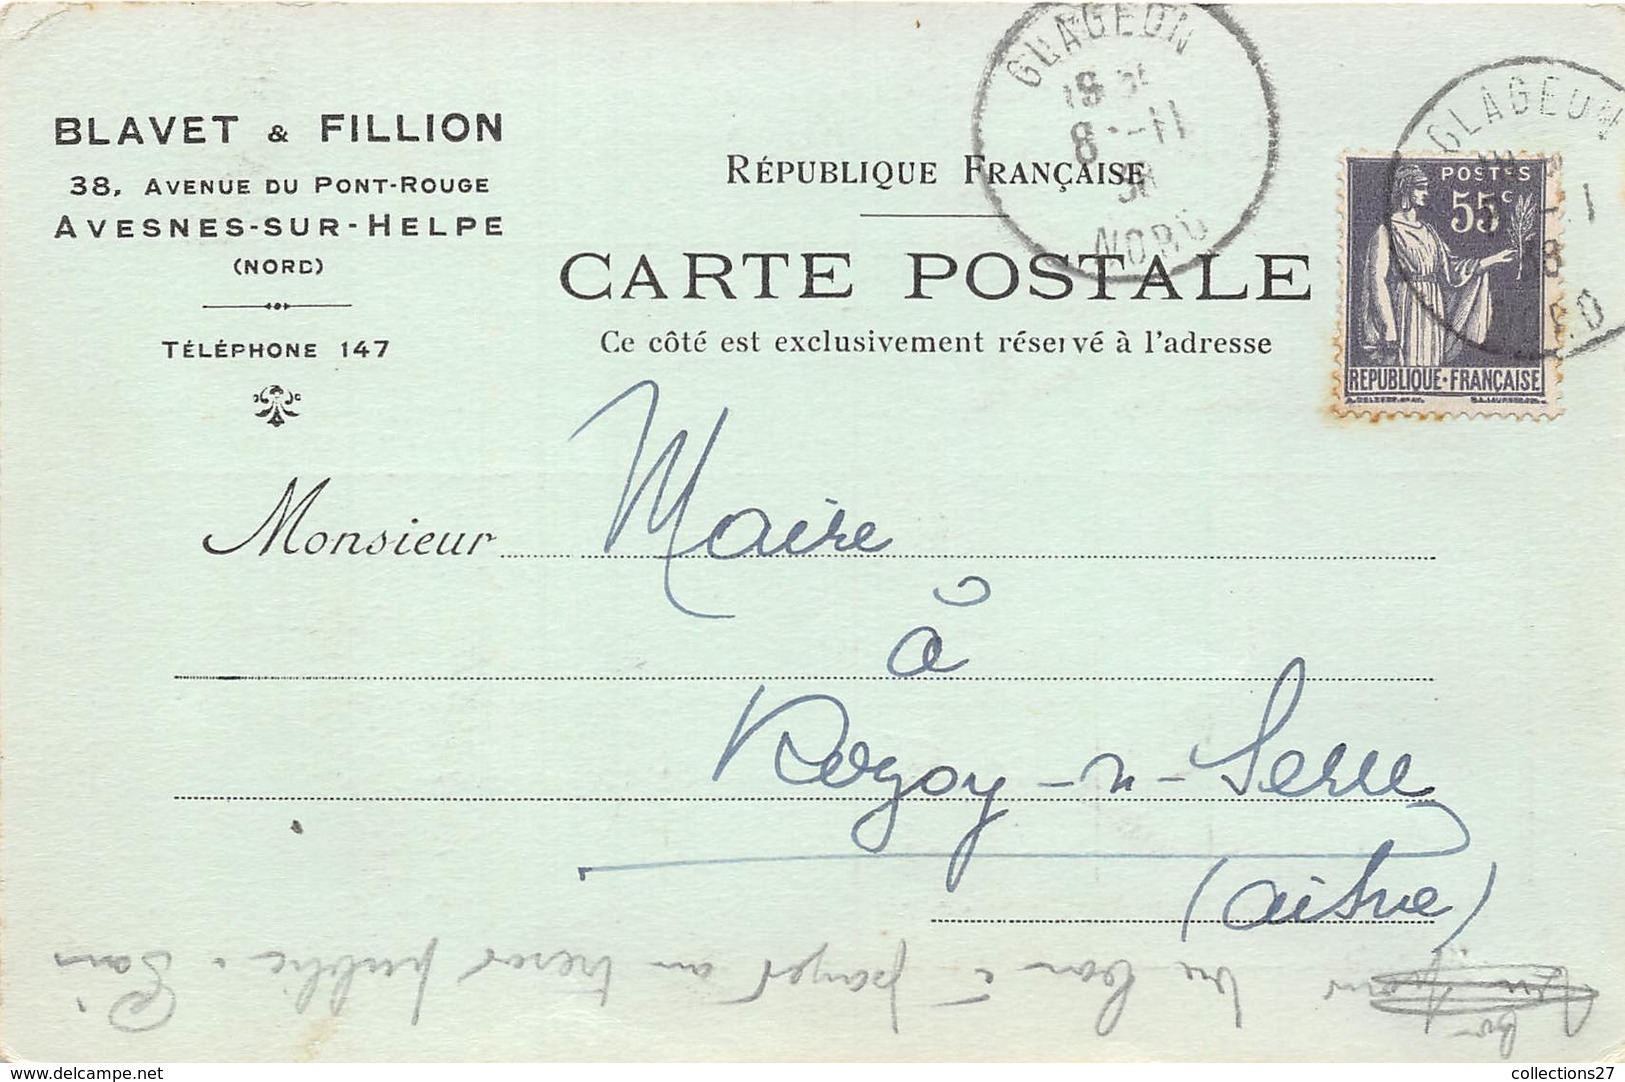 BLAVET & FILLION
38, AVENUE DU PONT-ROUGE
AVESNES-SUR-HELPE
(NORD)
TÉLÉPHONE 147
GLAGEON
8 -11
NORD
RÉPUBLIQUE FRANÇAISE
CARTE POSTALE
Ce côté est exclusivement réservé à l'adresse
GLAGEON
POSTES
55c
REPUBLIQUE·FRANÇAISE
Monsieur Maire
à
Rozoy-s-Serre
(Aisne)
bon à payer au tresor public.
delcampe.net
collections27